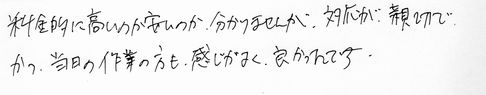 料金的に高いのか安いのか、分かりませんが、対応が親切で
かつ、当日の作業の方も、感じがよく、良かったです。